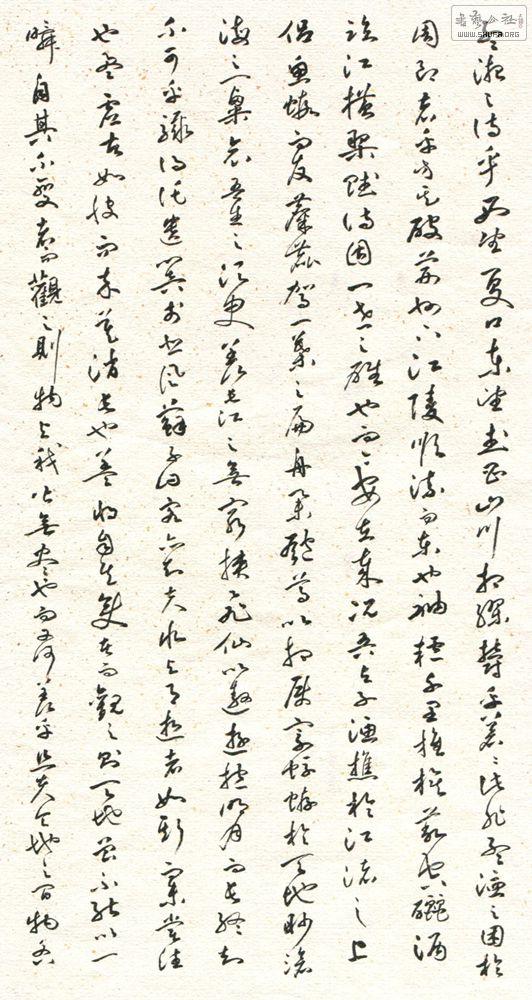 書藝公社
WWW.SHUFA.ORG
孟德之詩乎西望夏口東望武昌山川相繆鬱乎蒼々此非孟德之困於
周郎者乎方其破荊州下江陵順流而東也舳艫千里旌旗蔽空釃酒
臨江橫槊賦詩固一世之雄也而今安在哉況吾與子漁樵於江渚之上
侶魚蝦而友麋鹿駕一葉之扁舟舉匏尊以相屬寄蜉蝣於天地渺滄
海之一粟哀吾生之須臾羨長江之無窮挾飛仙以遨遊抱明月而長終知
不可乎驟得託遺響於悲風蘇子曰客亦知夫水與月逝者如斯而未嘗往
也盈虛者如彼而卒莫消長也蓋將自其變者而觀之則天地曾不能以一
瞬自其不變者而觀之則物與我皆無盡也而又何羨乎且夫天地之間物各